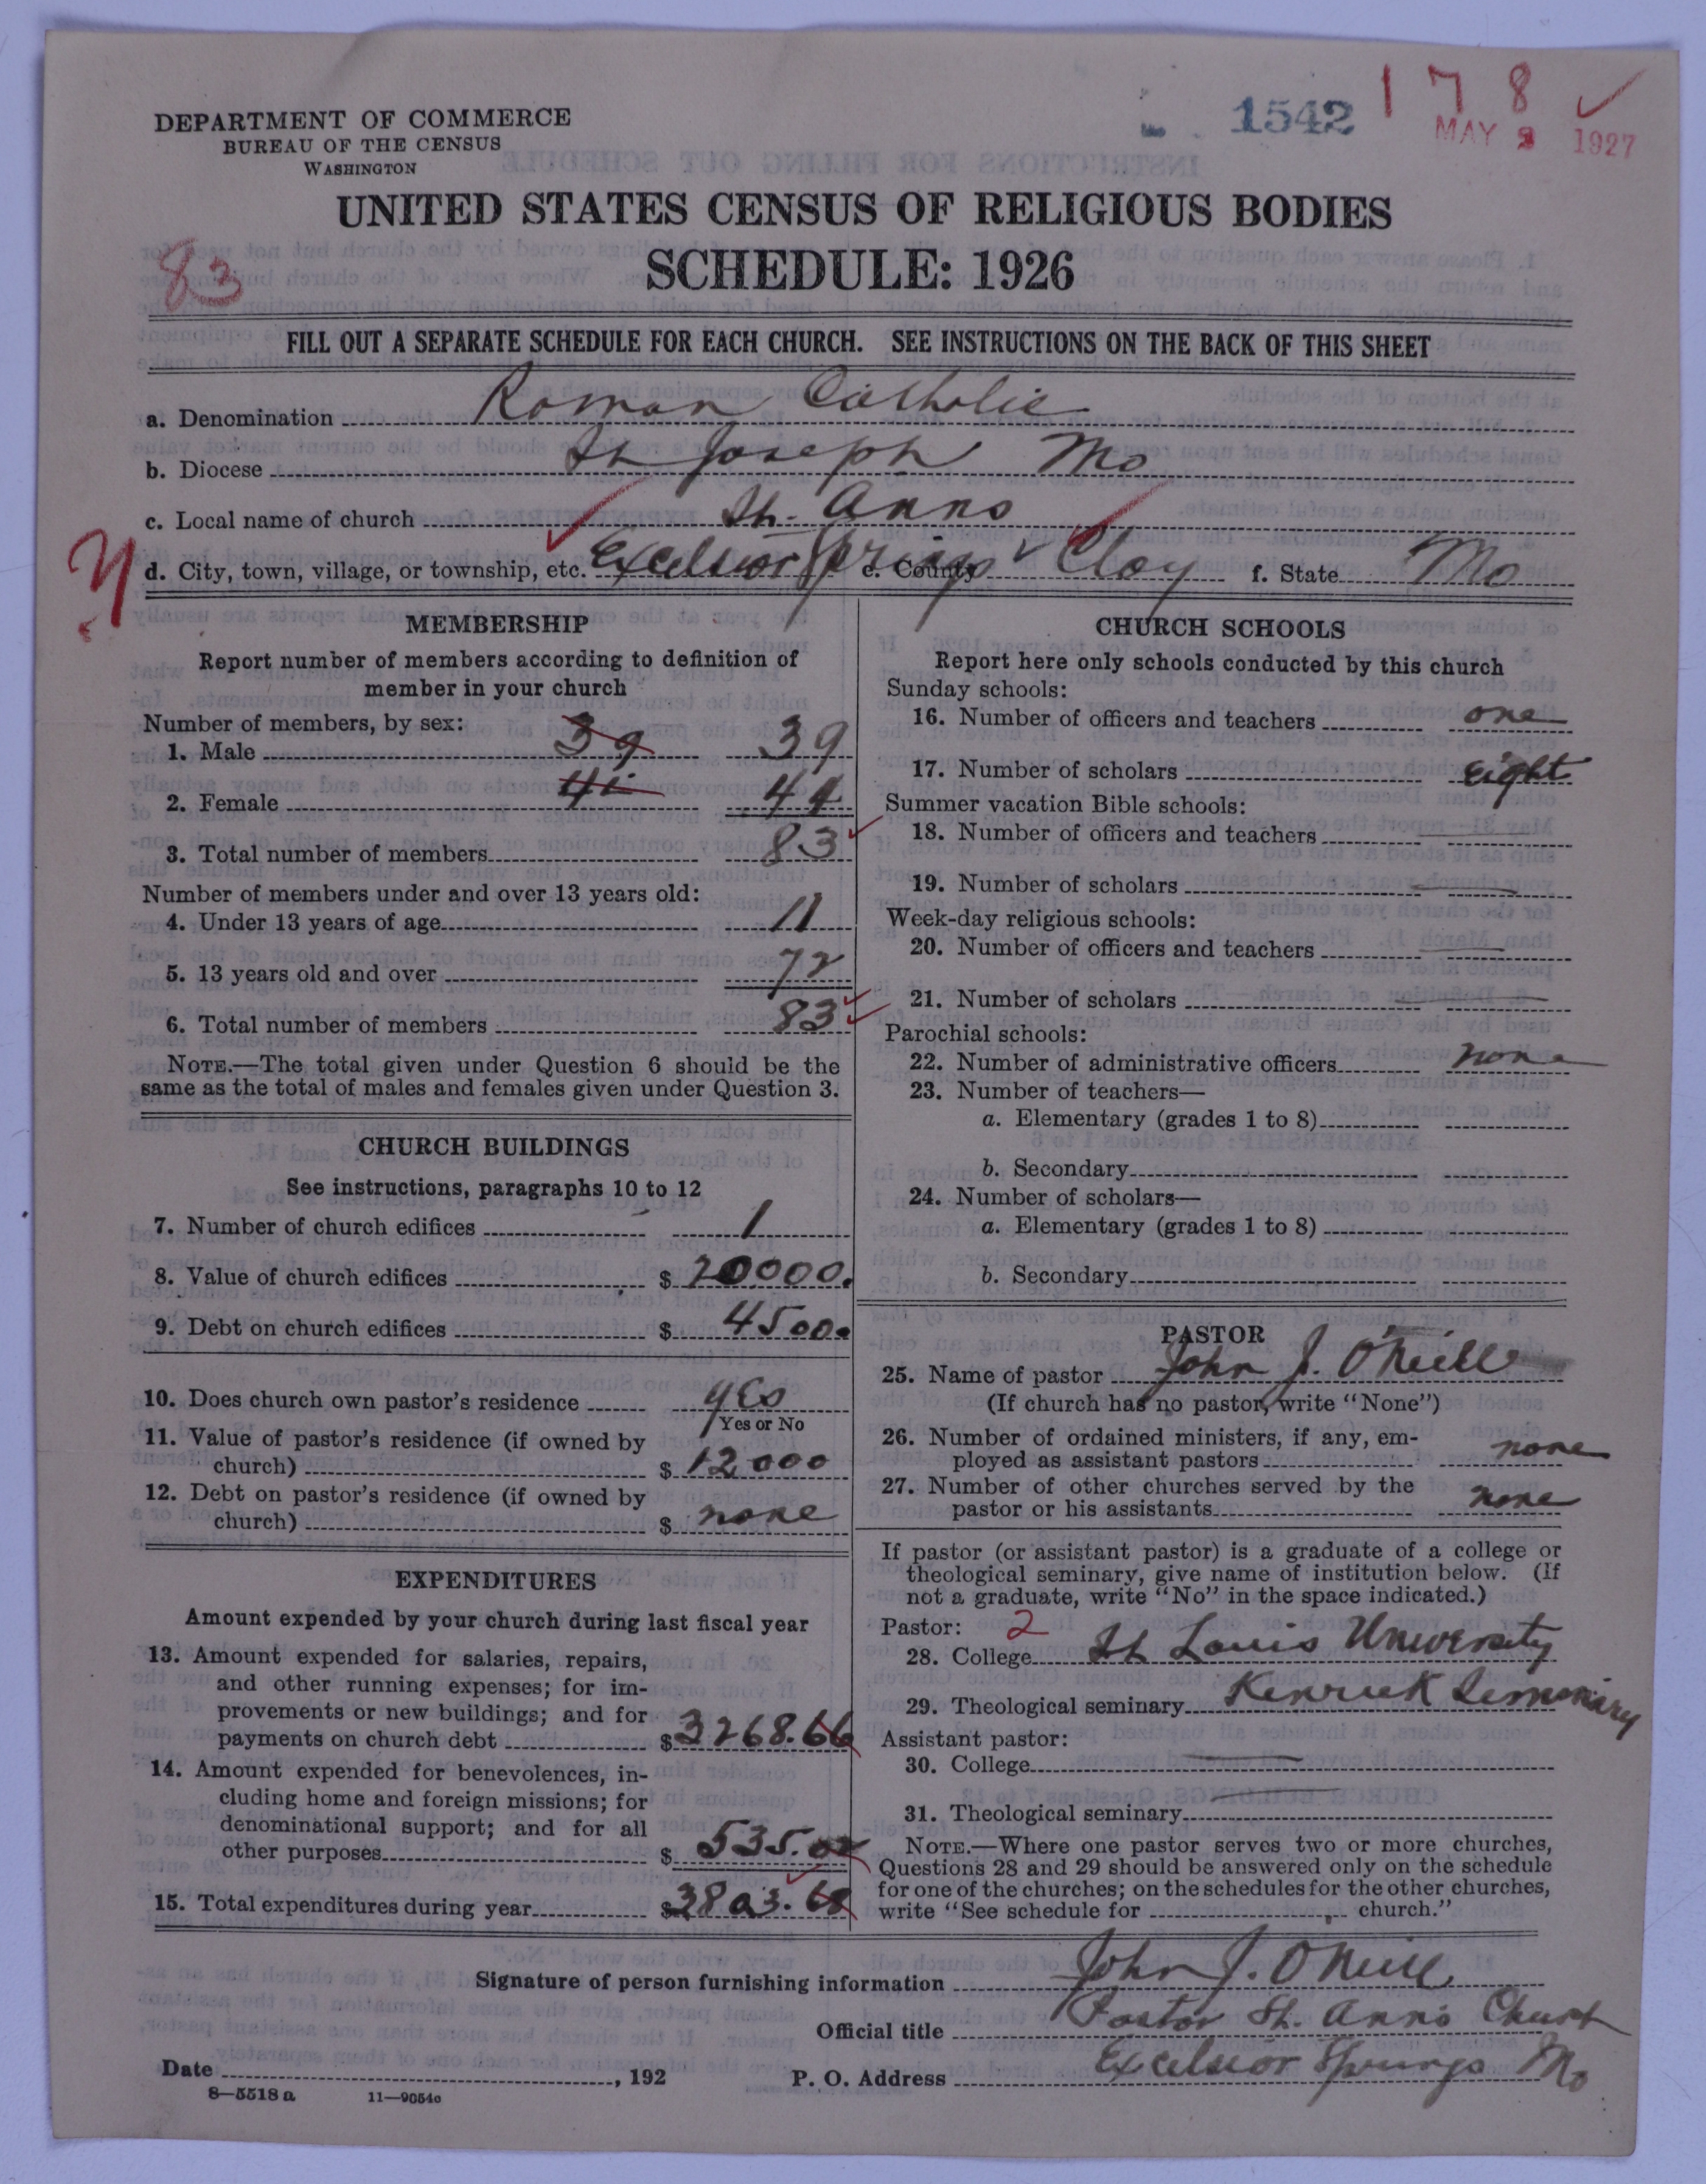 1542
1 7 8
MAY 2 1927
DEPARTMENT OF COMMERCE
BUREAU OF THE CENSUS
WASHINGTON
UNITED STATES CENSUS OF RELIGIOUS BODIES
83
SCHEDULE: 1926
FILL OUT A SEPARATE SCHEDULE FOR EACH CHURCH. SEE INSTRUCTIONS ON THE BACK OF THIS SHEET
a. Denomination Roman Catholic
b. Diocese St Joseph Mo
c. Local name of church St. Anns
d. City, town, village, or township, etc. Excelsior Springs e. County Clay f. State Mo
MEMBERSHIP
Report number of members according to definition of
member in your church
Number of members, by sex:
1. Male 39 39
2. Female 44 44
3. Total number of members 83
Number of members under and over 13 years old:
4. Under 13 years of age 11
5. 13 years old and over 72
6. Total number of members 83
NOTE.—The total given under Question 6 should be the
same as the total of males and females given under Question 3.
CHURCH BUILDINGS
See instructions, paragraphs 10 to 12
7. Number of church edifices 1
8. Value of church edifices $ 20000.
9. Debt on church edifices $ 4500.
10. Does church own pastor's residence yes
Yes or No
11. Value of pastor's residence (if owned by
church) $ 12000
12. Debt on pastor's residence (if owned by
church) $ none
EXPENDITURES
Amount expended by your church during last fiscal year
13. Amount expended for salaries, repairs,
and other running expenses; for im-
provements or new buildings; and for
payments on church debt $ 3268.66
14. Amount expended for benevolences, in-
cluding home and foreign missions; for
denominational support; and for all
other purposes $ 535.02
15. Total expenditures during year $ 3803.68
CHURCH SCHOOLS
Report here only schools conducted by this church
Sunday schools:
16. Number of officers and teachers one
17. Number of scholars eight
Summer vacation Bible schools:
18. Number of officers and teachers
19. Number of scholars
Week-day religious schools:
20. Number of officers and teachers
21. Number of scholars
Parochial schools:
22. Number of administrative officers none
23. Number of teachers—
a. Elementary (grades 1 to 8)
b. Secondary
24. Number of scholars—
a. Elementary (grades 1 to 8)
b. Secondary
PASTOR
25. Name of pastor John J. O'Neill
(If church has no pastor, write "None")
26. Number of ordained ministers, if any, em-
ployed as assistant pastors none
27. Number of other churches served by the
pastor or his assistants none
If pastor (or assistant pastor) is a graduate of a college or
theological seminary, give name of institution below. (If
not a graduate, write "No" in the space indicated.)
Pastor: 2
28. College St Louis University
29. Theological seminary Kenrick Seminary
Assistant pastor:
30. College
31. Theological seminary
NOTE.—Where one pastor serves two or more churches,
Questions 28 and 29 should be answered only on the schedule
for one of the churches; on the schedules for the other churches,
write "See schedule for church."
Signature of person furnishing information John J. O'Neill
Official title Pastor St. Anns Church
Date , 192 P. O. Address Excelsior Springs Mo
8—5518 a 11—9054c